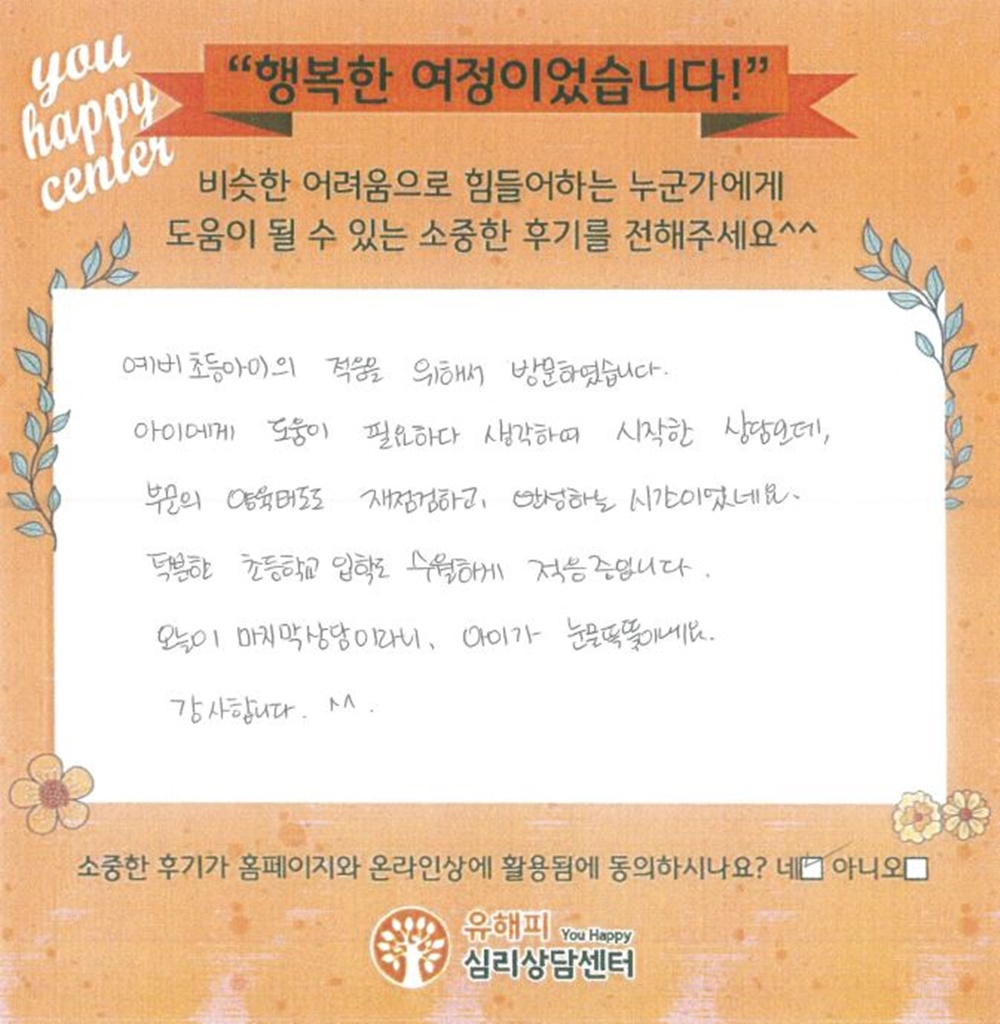 you
happy
center
“행복한 여정이었습니다!”
비슷한 어려움으로 힘들어하는 누군가에게
도움이 될 수 있는 소중한 후기를 전해주세요^^
예비초등아이의 적응을 위해서 방문하였습니다.
아이에게 도움이 필요하다 생각하며 시작한 상담으데,
부모의 양육태도도 재점검하고, 반성하는 시간이였네요.
덕분한 초등학교 입학도 수월하게 적응중입니다.
오늘이 마지막상담이라니, 아이가 눈물뚝뚝이네요.
감사합니다. ^^.
소중한 후기가 홈페이지와 온라인상에 활용됨에 동의하시나요? 네 아니오
유해피 You Happy
심리상담센터